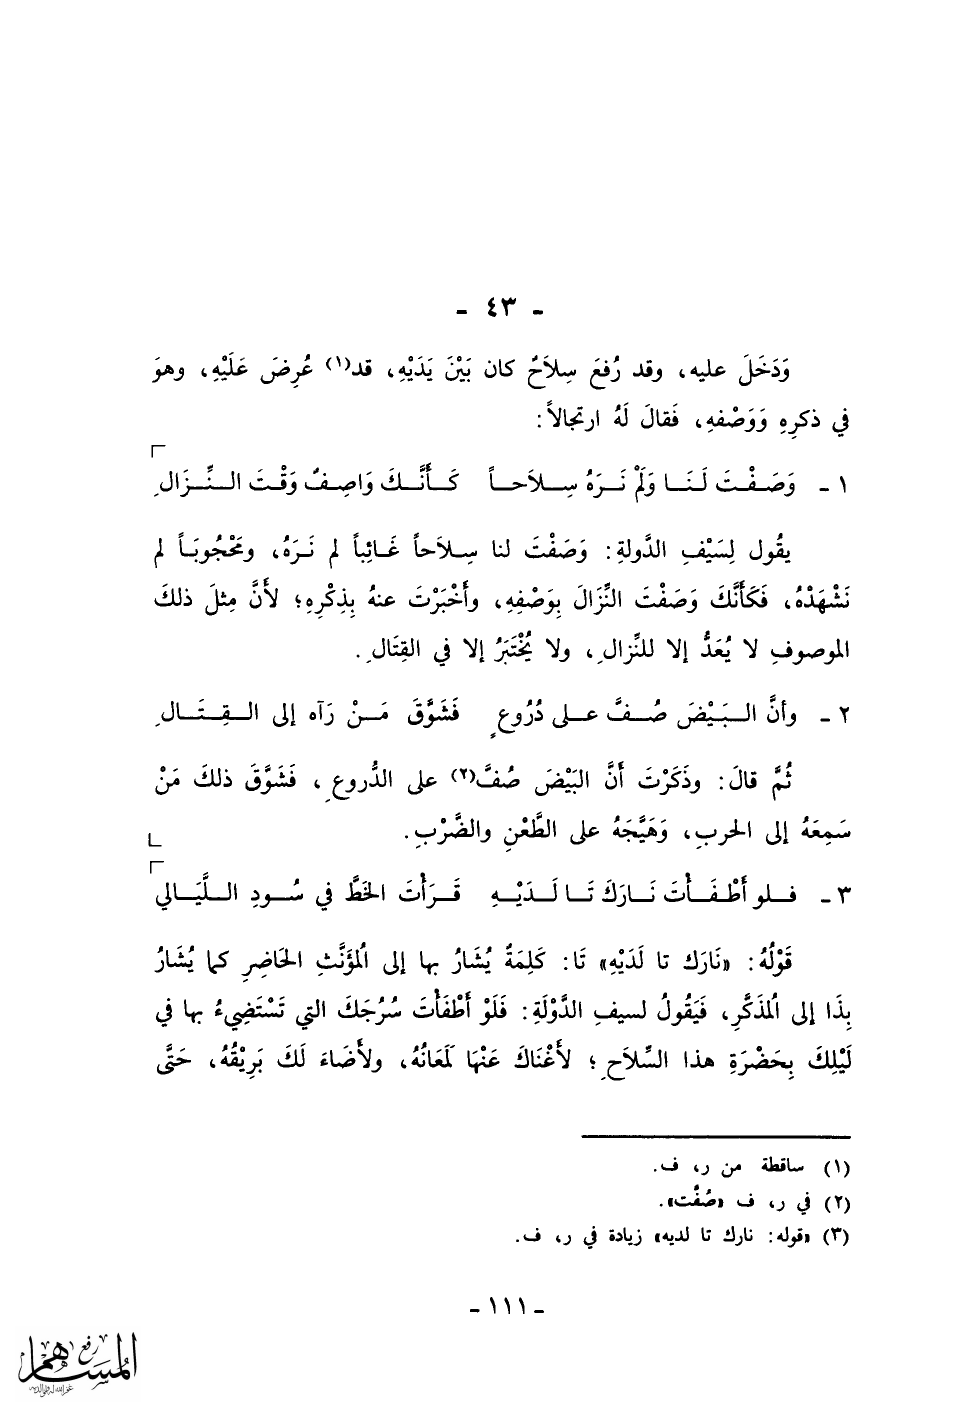 - ٤٣ -
وَدَخَلَ عليه، وقد رُفعَ سِلاَحٌ كان بَيْنَ يَدَيْهِ، قد(١) عُرِضَ عَلَيْهِ، وهوَ
في ذكرِهِ وَوَصْفهِ، فَقالَ لَهُ ارتجالاً:
١ - وَصَفْتَ لَنَا وَلَمْ نَرَهُ سِلاَحاً كَأَنَّكَ وَاصِفٌ وَقْتَ النِّزَالِ
يقُول لِسَيْفِ الدَّولةِ: وَصَفْتَ لنا سِلاَحاً غَائِباً لم نَرَهُ، ومَحْجُوبَاً لم
نَشْهَدْهُ، فَكَأَنَّكَ وَصَفْتَ النِّزَالَ بِوَصْفِهِ، وأخْبَرْتَ عنهُ بِذِكْرِهِ؛ لأَنَّ مِثلَ ذلكَ
الموصوفِ لا يُعَدُّ إلا للنِّزالِ، ولا يُخْتَبَرُ إلا في القِتَالِ.
٢ - وأنَّ البَيْضَ صُفَّ على دُرُوعٍ فَشَوَّقَ مَنْ رَآه إلى القِتَالِ
ثُمَّ قالَ: وذَكَرْتَ أَنَّ البَيْضَ صُفَّ(٢) على الدُّروعِ، فَشَوَّقَ ذلكَ مَنْ
سَمِعَهُ إلى الحربِ، وَهَيَّجَهُ على الطَّعْنِ والضَّرْبِ.
٣ - فلو أَطْفَأْتَ نَارَكَ تَا لَدَيْهِ قَرَأْتَ الخَطَّ في سُودِ اللَّيَالي
قَوْلُهُ: «نَارَك تا لَدَيْهِ» تَا: كَلِمَةٌ يُشَارُ بها إلى اُلمؤَنَّثِ الحَاضِرِ كما يُشَارُ
بِذَا إلى اُلمذَكَّرِ، فَيَقُولُ لسيفِ الدَّوْلَةِ: فَلَوْ أَطْفَأْتَ سُرُجَكَ التي تَسْتَضِيءُ بها في
لَيْلِكَ بِحَضْرَةِ هذا السِّلاَحِ؛ لأَغْنَاكَ عَنْهَا لَمَعَانُهُ، ولأَضَاءَ لَكَ بَرِيْقُهُ، حَتَّى
(١) ساقطة من ر، ف.
(٢) في ر، ف «صُفَّت».
(٣) «قوله: نارك تا لديه» زيادة في ر، ف.
- ١١١ -
رفع
المساهم